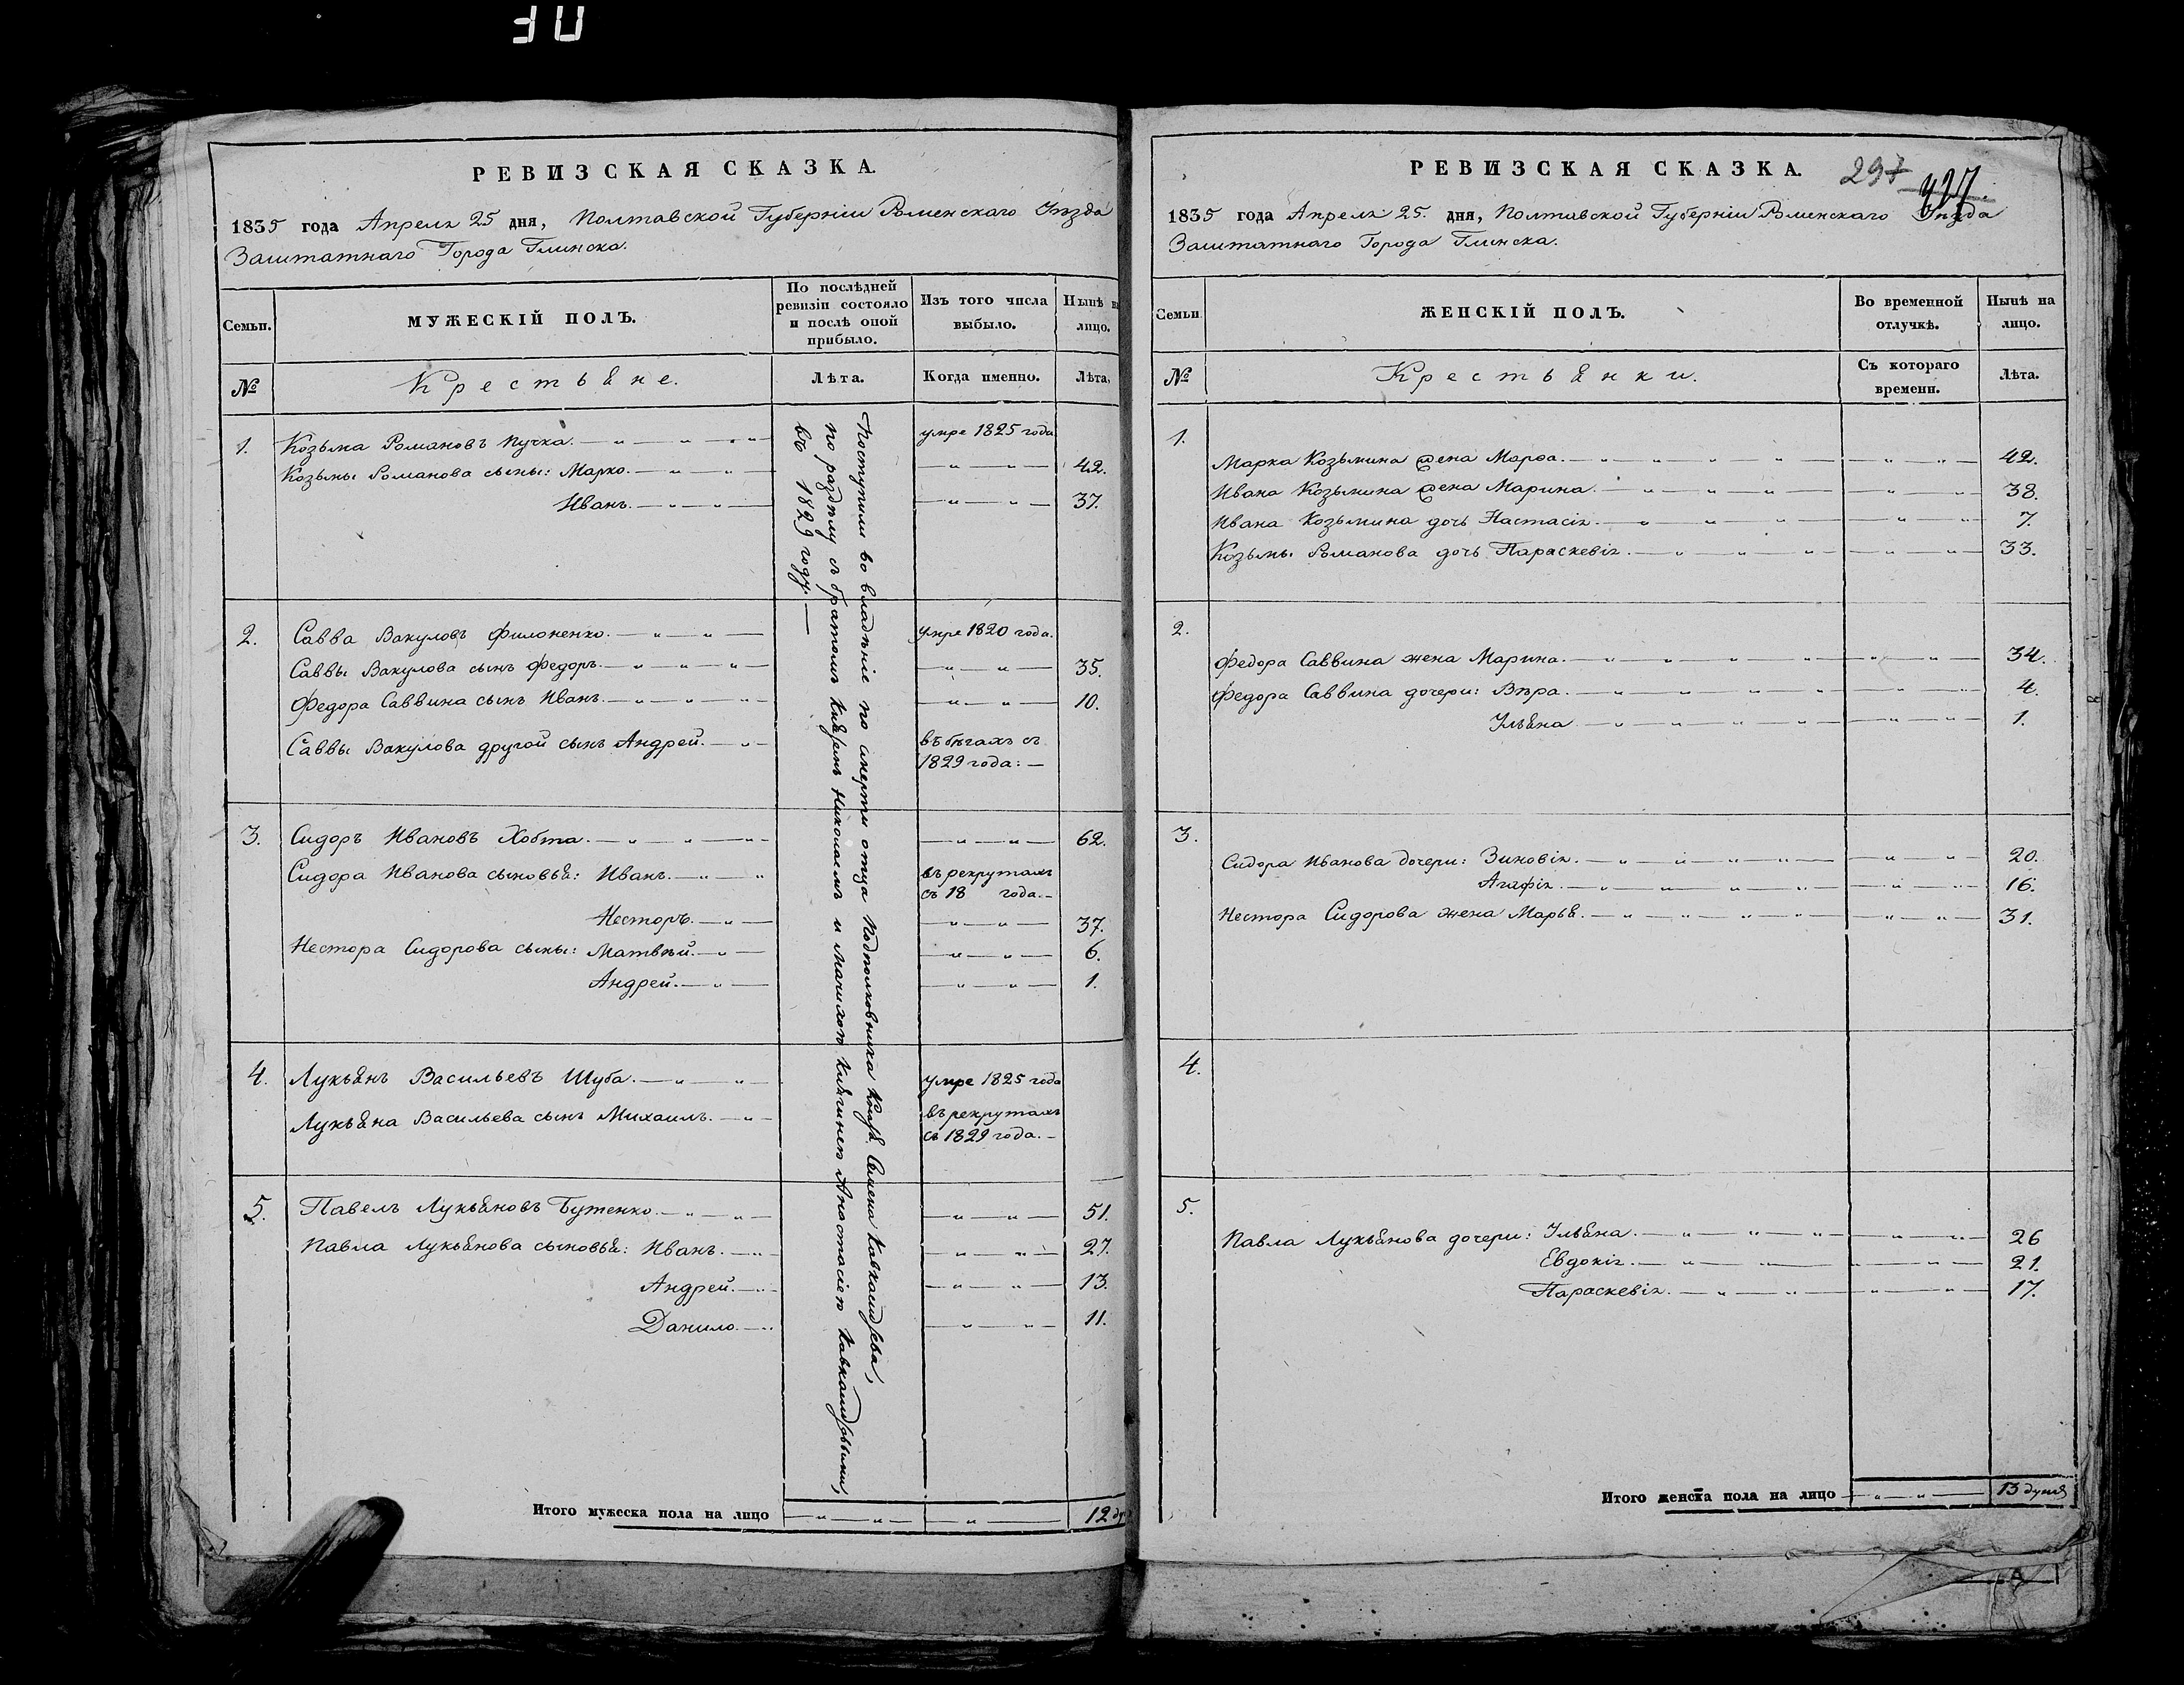 РЕВИЗСКАЯ СКАЗКА.
1835 года Апреля 25 дня, Полтавской Губерніи Роменскаго Уѣзда
Заштатнаго Города Глинска.
Семьи.
МУЖЕСКІЙ ПОЛЪ.
По послѣдней
ревизіи состояло
и послѣ оной
прибыло.
Изъ того числа
выбыло.
Нынѣ на
лицо.
№
Крестьяне.
Лѣта.
Когда именно.
Лѣта.
Поступили во владѣніе по смерти отца Подполковника Князя Семена Кавкасидзева,
по раздѣлу съ братомъ Княземъ Николаемъ и мачихою Княгинею Анастасіею Кавкасидзевыми,
въ 1829 году. —
1. Козьма Романовъ Пучка. — умре 1825 года
Козьмы Романова сыны: Марко. — 42.
Иванъ. — 37.
2. Савва Вакуловъ Филоненко. — умре 1820 года.
Саввы Вакулова сынъ Федоръ. — 35.
Федора Саввина сынъ Иванъ. — 10.
Саввы Вакулова другой сынъ Андрей. — въ бѣгахъ съ
1829 года: —
3. Сидоръ Ивановъ Хобта. — 62.
Сидора Иванова сыновья: Иванъ. — въ рекрутахъ
съ 18 года. —
Несторъ. — 37.
Нестора Сидорова сыны: Матвѣй. — 6.
Андрей. — 1.
4. Лукьянъ Васильевъ Шуба. — умре 1825 года
Лукьяна Васильева сынъ Михаилъ. — въ рекрутахъ
съ 1829 года. —
5. Павелъ Лукьяновъ Бутенко. — 51.
Павла Лукьянова сыновья: Иванъ. — 27.
Андрей. — 13.
Данило. — 11.
Итого мужеска пола на лицо 12 ду
РЕВИЗСКАЯ СКАЗКА.
297
427
1835 года Апреля 25. дня, Полтавской Губерніи Роменскаго Уѣзда
Заштатнаго Города Глинска.
Семьи
ЖЕНСКІЙ ПОЛЪ.
Во временной
отлучкѣ.
Нынѣ на
лицо.
№
Крестьянки.
Съ котораго
времени.
Лѣта.
1.
Марка Козьмина жена Марфа. — 42.
Ивана Козьмина жена Марина. — 38.
Ивана Козьмина дочь Настасія. — 7.
Козьмы Романова дочь Параскевія. — 33.
2.
Федора Саввина жена Марина. — 34.
Федора Саввина дочери: Вѣра. — 4.
Ульяна — 1.
3.
Сидора Иванова дочери: Зиновія. — 20.
Агафія. — 16.
Нестора Сидорова жена Марья. — 31.
4.
5.
Павла Лукьянова дочери: Ульяна. — 26
Евдокія. — 21.
Параскевія. — 17.
Итого женска пола на лицо — 13 душъ